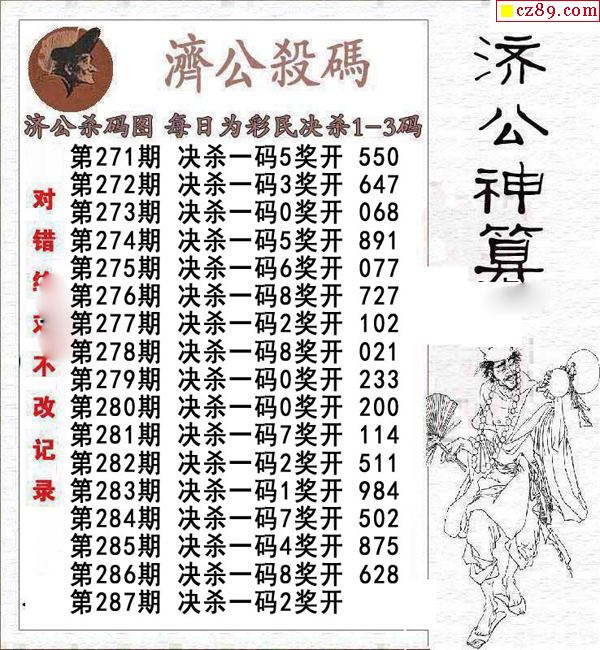 cz89.com
濟公殺碼
济公杀码图 每日为彩民决杀1-3码
第271期 决杀一码5奖开 550
第272期 决杀一码3奖开 647
第273期 决杀一码0奖开 068
第274期 决杀一码5奖开 891
第275期 决杀一码6奖开 077
第276期 决杀一码8奖开 727
第277期 决杀一码2奖开 102
第278期 决杀一码8奖开 021
第279期 决杀一码0奖开 233
第280期 决杀一码0奖开 200
第281期 决杀一码7奖开 114
第282期 决杀一码2奖开 511
第283期 决杀一码1奖开 984
第284期 决杀一码7奖开 502
第285期 决杀一码4奖开 875
第286期 决杀一码8奖开 628
第287期 决杀一码2奖开
对错不改记录
济公神算